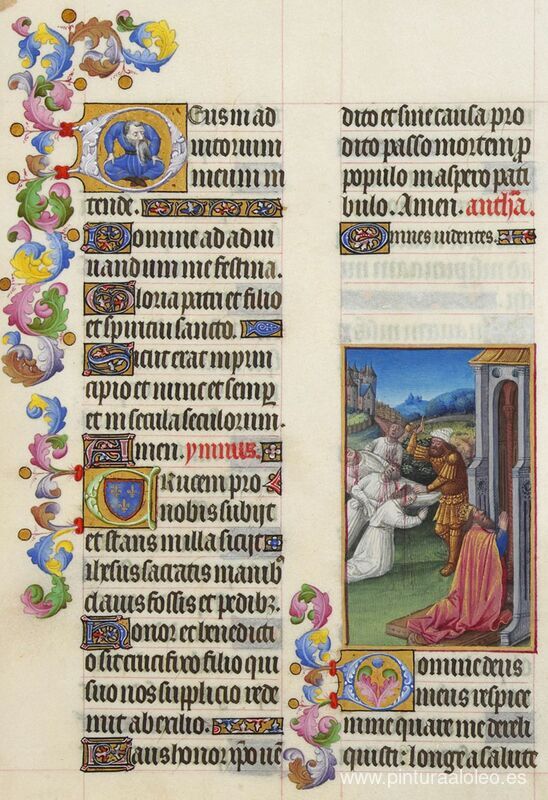 Deus in ad
iutorium
meum in
tende.
Domine ad adiu
uandum me festina.
Gloria patri et filio
et spiritui sancto.
Sicut erat in prin
cipio et nunc et semp
et in secula seculorum.
Amen. ymnus.
Crucem pro
nobis subijt
et stans in illa sicijt
ihesus sacratis manib
clauis fossis et pedibz.
Honor et benedicti
o sit crucifixo filio qui
suo nos supplicio rede
mit ab exilio.
Laus honor xpo uen
dito et sine causa pro
dito passo mortem p
populo in aspero pati
bulo. Amen. antha.
Omnes uidentes.
Domine deus
meus respice
in me quare me dereli
quisti: longe a salute
www.pinturaaloleo.es